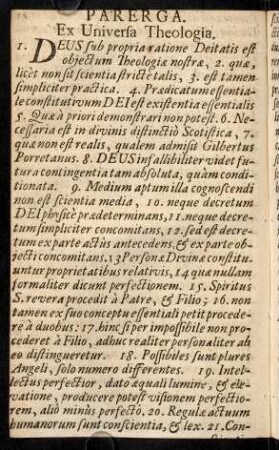 PARERGA.
Ex Universa Theologia.
1. DEUS sub propria ratione Deitatis est
objectum Theologiæ nostræ, 2. quæ,
licèt non sit scientia strictè talis, 3. est tamen
simpliciter practica. 4. Prædicatum essentia-
le constitutivum DEI est existentia essentialis
5. Quæ à priori demonstrari non potest. 6. Ne-
cessaria est in divinis distinctiò Scotistica, 7.
quæ non est realis, qualem admisit Gilbertus
Porretanus. 8. DEUS infallibiliter videt fu-
tura contingentia tam absoluta, quàm condi-
tionata. 9. Medium aptum illa cognoscendi
non est scientia media, 10. neque decretum
DEI physicè prædeterminans, 11. neque decre-
tum simpliciter concomitans, 12. sed est decre-
tum ex parte actûs antecedens, & ex parte ob-
jecti concomitans. 13 Personæ Divinæ constitu-
untur proprietatibus relativis, 14 quæ nullam
formaliter dicunt perfectionem. 15. Spiritus
S. revera procedit à Patre, & Filio; 16. non
tamen ex suo conceptu essentiali petit procede-
re à duobus: 17. hinc si per impossibile non pro-
cederet à Filio, adhuc realiter personaliter ab
eo distingueretur. 18. Possibiles sunt plures
Angeli, solo numero differentes. 19. Intel-
lectus perfectior, dato æquali lumine, & ele-
vatione, producere potest visionem perfectio-
rem, aliò minùs perfectô. 20. Regulæ actuum
humanorum sunt conscientia, & lex. 21. Con-